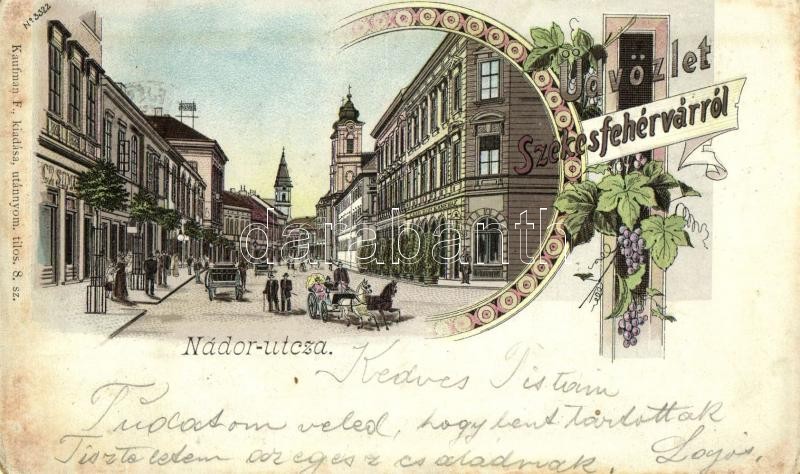 No 3322
Kaufman F., kiadása, utánnyom. tilos. 8. sz.
Üdvözlet
Székesfehérvárról
darabanth
Nádor-utcza.
Kedves Pistám
Tudatom veled, hogy bent tartottak
Tiszteletem az egész családnak, Lajos.